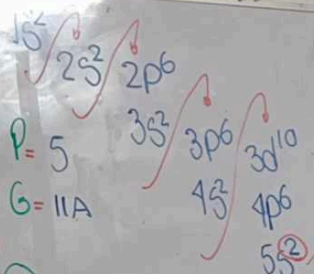 1s² 2s² 2p⁶
3s² 3p⁶ 3d¹⁰
4s² 4p⁶
5s²
P= 5
G= IIA